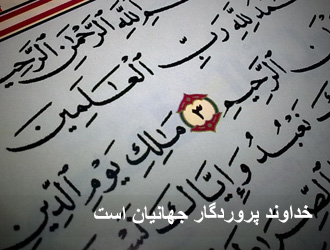 ٱللَّهِ ٱلرَّحْمَٰنِ ٱلرَّحِيمِ
لِلَّهِ رَبِّ ٱلْعَٰلَمِينَ
ٱلرَّحِيمِ ٣ مَٰلِكِ يَوْمِ ٱلدِّينِ
نَعْبُدُ وَإِيَّاكَ
خداوند پروردگار جهانیان است